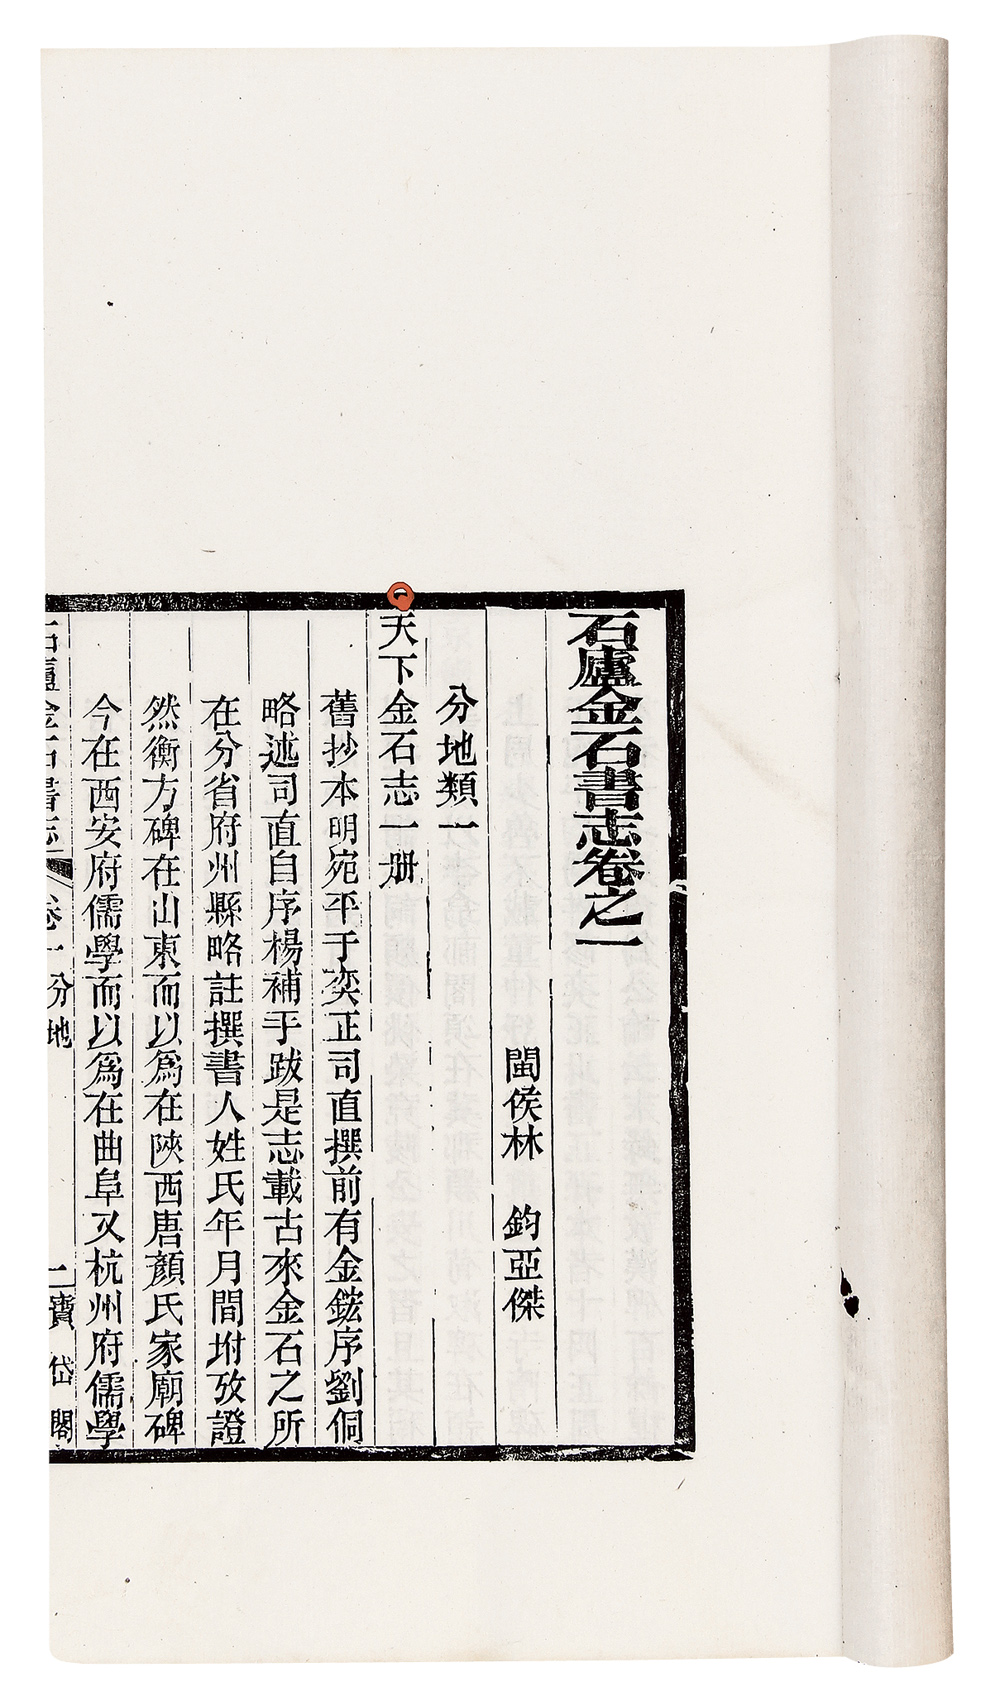 石廬金石書志卷之一
閩侯林 鈞亞傑
分地類一
天下金石志一册
舊抄本明宛平于奕正司直撰前有金鋐序劉侗
略述司直自序楊補手跋是志載古來金石之所
在分省府州縣略註撰書人姓氏年月間坿攷證
然衡方碑在山東而以爲在陝西唐顏氏家廟碑
今在西安府儒學而以爲在曲阜又杭州府儒學
石廬金石書志 卷一 分地 一 寶岱閣